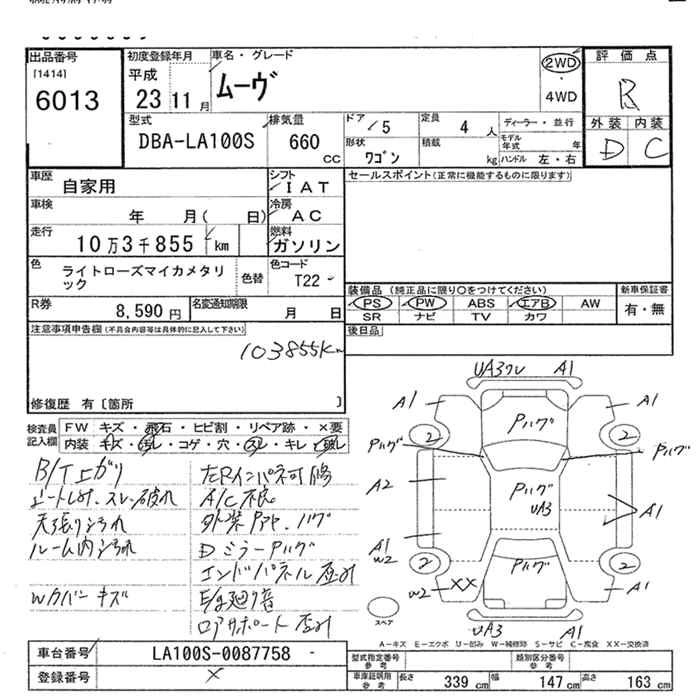 出品番号
[1414]
6013
初度登録年月
平成
23 11 月
車名・グレード
ムーヴ
2WD
・
4WD
評価点
R
外装 内装
D C
型式
DBA-LA100S
排気量
660
CC
ドア
5
形状
ワゴン
定員
4 人
積載
kg
ディーラー・並行
モデル年式 年
ハンドル 左・右
車歴
自家用
シフト
I AT
セールスポイント(正常に機能するものに限ります)
車検
年 月( 日)
冷房
AC
走行
10万3千855 km
燃料
ガソリン
色
ライトローズマイカメタリック
色替
色コード
T22
装備品 (純正品に限り○をつけてください)
PS PW ABS エアB AW
SR ナビ TV カワ
新車保証書
有・無
R券
8,590 円
名変通知期限
月 日
後日品
注意事項申告欄(不具合内容等は具体的に記入して下さい)
103855Km
修復歴 有〔箇所 〕
検査員記入欄
FW キズ・飛石・ヒビ割・リペア跡・×要
内装 キズ・汚れ・コゲ・穴・スレ・キレ・破れ
B/T上がり
シートしみ、スレ、破れ
天張り汚れ
ルーム内汚れ
Wカバーキズ
左Rインパネ可修
A/C不良
Dミラー Pハゲ
エンドパネル歪み
ロアサポート歪み
UA3ワレ A1
A1 A1
Pハゲ
2 2
Pハゲ Pハゲ
A2 Pハゲ
UA3 A1
A1
W2
2 2
Pハゲ
W2 XX A1
UA3 A1
スペア
A−キズ E−エクボ U−凹み W−補修跡 S−サビ C−腐食 XX−交換済
車台番号
LA100S-0087758
登録番号
×
型式指定番号
参考
類別区分番号
参考
車庫証明用
参考
長さ 339 cm 幅 147 cm 高さ 163 cm